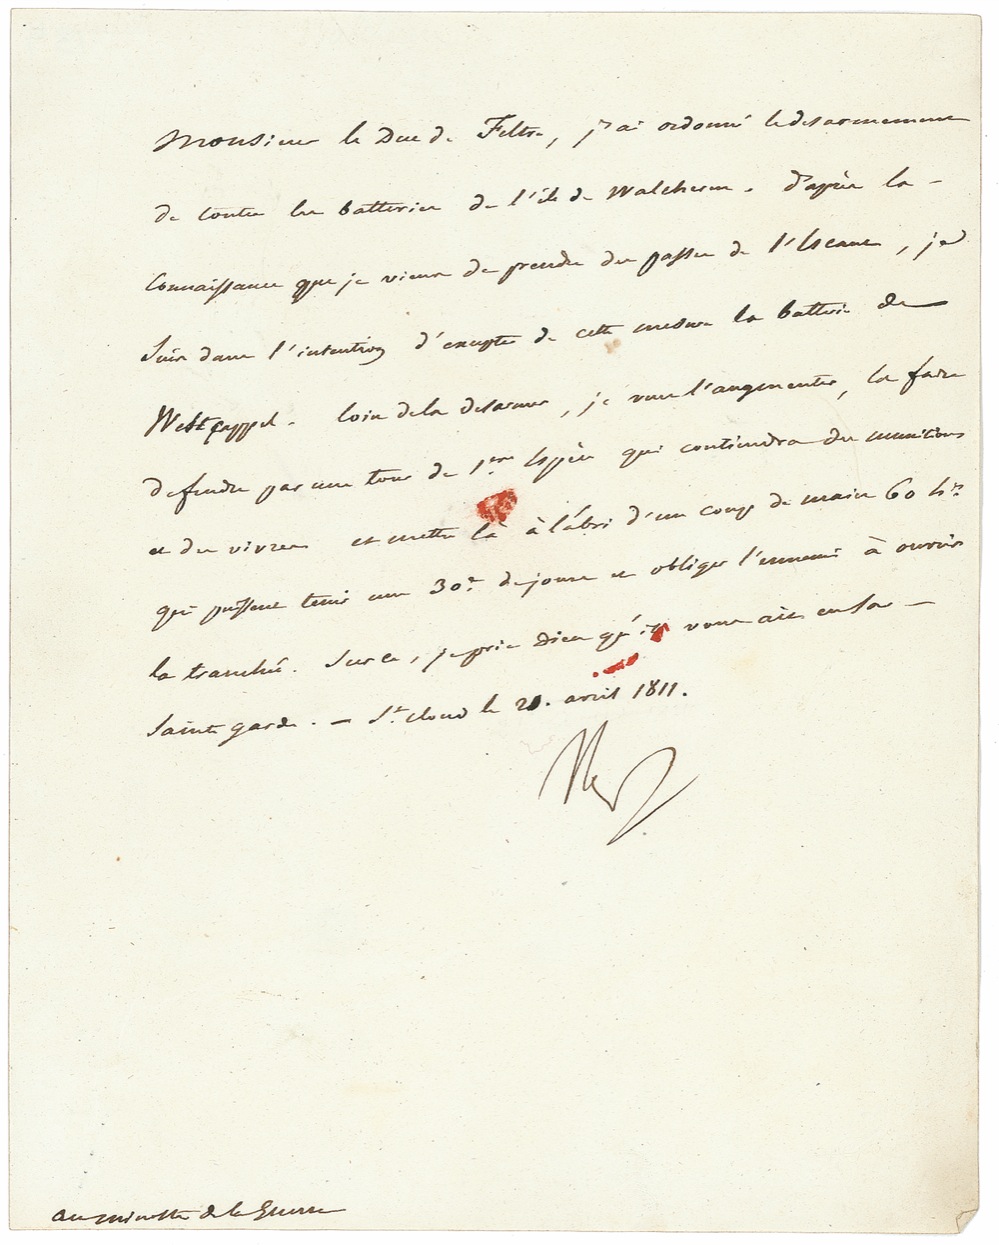 Monsieur le Duc de Feltre, j'ai ordonné le desarmement
de toutes les batteries de l'ile de Walcheren. D'après la -
Connaissance que je viens de prendre des passes de l'Escaut, je
suis dans l'intention d'excepter de cette mesure la batterie de
Westcappel. Loin de la desarmer, je veux l'augmenter, la faire
defendre par une tour de 1ere espèce qui contiendra des munitions
et des vivres et mettre là à l'abri d'un coup de main 60 hes
qui puissent tenir une 30e de jours et obliger l'ennemi à ouvrir
la tranchée. Sur ce, je prie Dieu qu'il vous ait en sa -
Sainte garde. - St Cloud le 21. avril 1811.
Np
au ministre de la Guerre